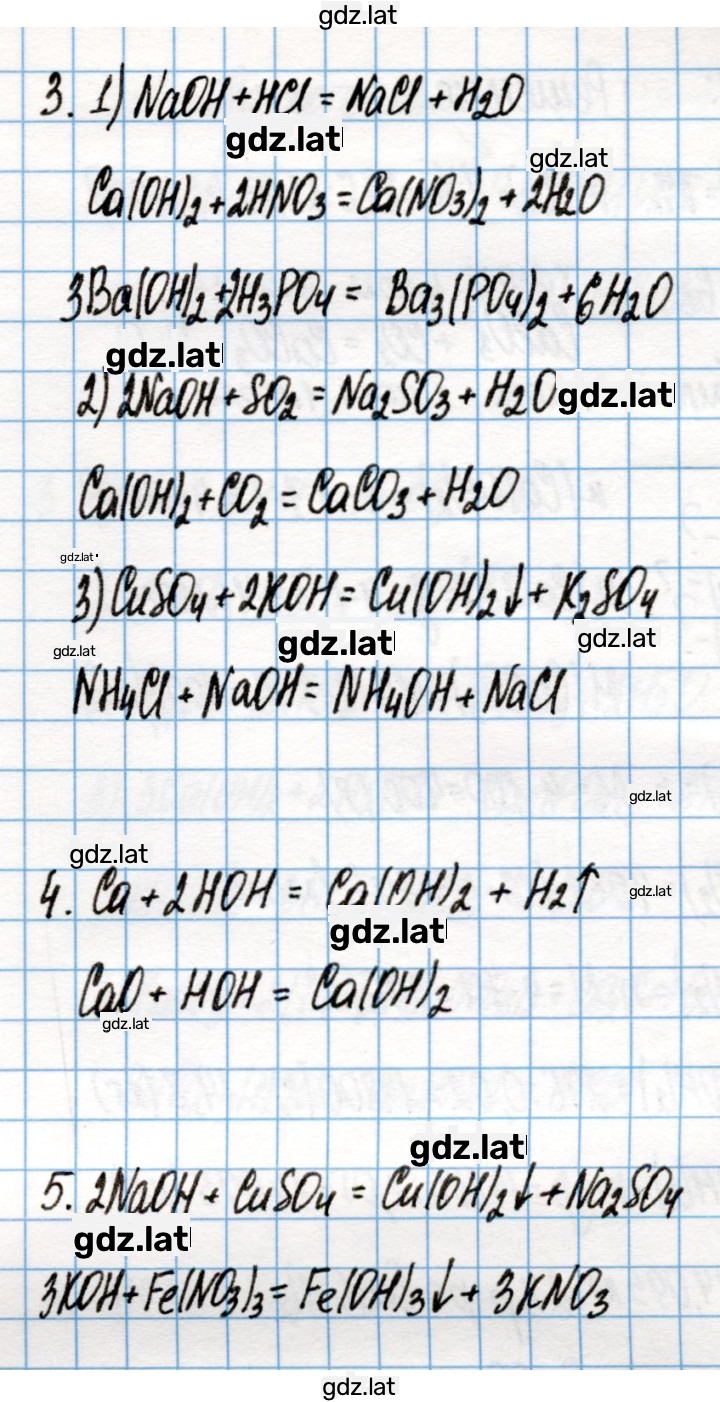 gdz.lat
3. 1) NaOH + HCl = NaCl + H2O
gdz.lat
gdz.lat
Ca(OH)2 + 2HNO3 = Ca(NO3)2 + 2H2O
3Ba(OH)2 + 2H3PO4 = Ba3(PO4)2 + 6H2O
gdz.lat
2) 2NaOH + SO2 = Na2SO3 + H2O gdz.lat
Ca(OH)2 + CO2 = CaCO3 + H2O
gdz.lat
3) CuSO4 + 2KOH = Cu(OH)2↓ + K2SO4
gdz.lat gdz.lat gdz.lat
NH4Cl + NaOH = NH4OH + NaCl
gdz.lat
gdz.lat
4. Ca + 2HOH = Ca(OH)2 + H2↑ gdz.lat
gdz.lat
CaO + HOH = Ca(OH)2
gdz.lat
gdz.lat
5. 2NaOH + CuSO4 = Cu(OH)2↓ + Na2SO4
gdz.lat
3KOH + Fe(NO3)3 = Fe(OH)3↓ + 3KNO3
gdz.lat